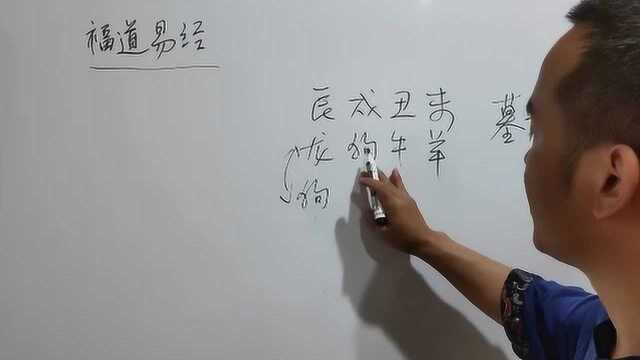 福道易经
辰戌丑未 墓
龙狗牛羊
狗